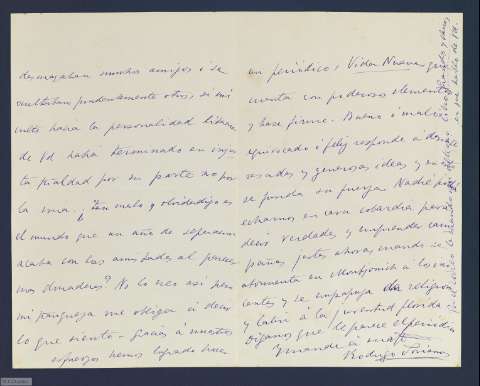 desmayaban muchos amigos i se
ocultaban prudentemente otros, ni mi
culto hacia la personalidad literaria
de Vd había terminado en injus
ta frialdad por su parte no por
la mia. ¿Tan malo y olvidadizo es
el mundo que un año de separacion
acaba con las amistades al parecer
mas duraderas? No lo creo así pero
mi franqueza me obliga á decir
lo que siento - gracias á nuestros
esfuerzos hemos logrado hacer
un periódico; Vida Nueva que
cuenta con poderosos elementos
y base firme. Bueno ó malo
equivocado ó feliz responde á desin
resadas y generosas ideas y en
se funda su fuerza. Nadie podrá
echarnos en cara cobardía para
decir verdades, y emprender cam
pañas justas ahora cuando se
atormenta en Montjuich á los
y se empapuja de religion
y latin á la juventud florida -
digamos que le parece el periódico
y mande á su aftº
Rodrigo Soriano